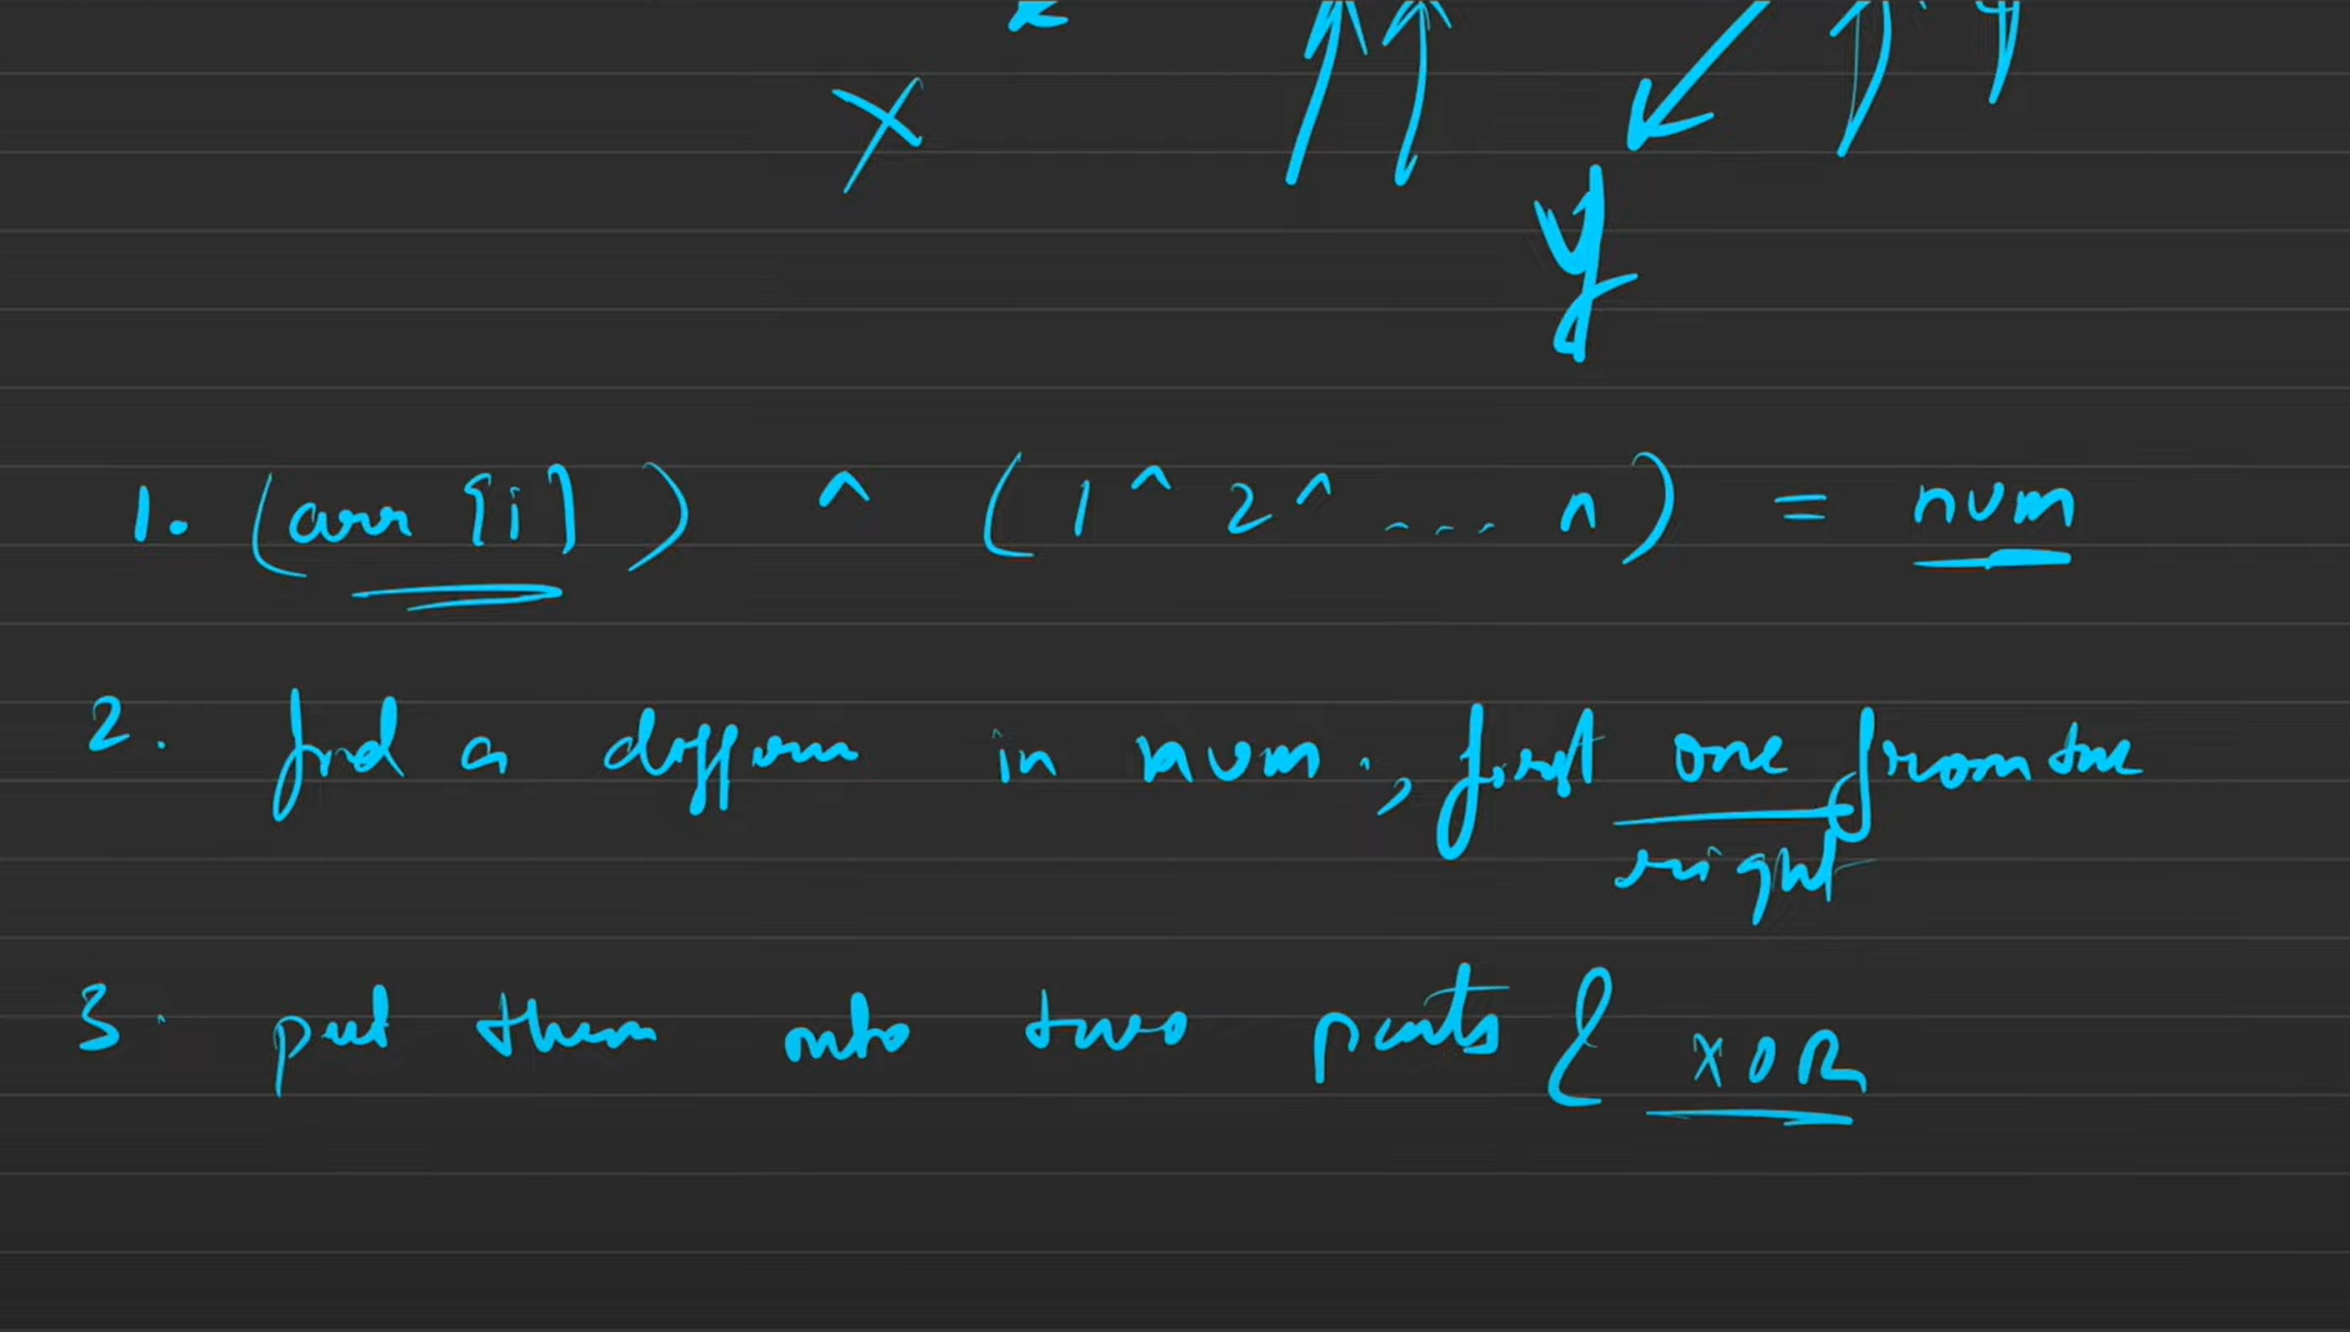 X
y
1. (arr [i]) ^ (1 ^ 2 ^ ... n) = num
2. find a differen in num, first one from the
right
3. put them into two parts & XOR